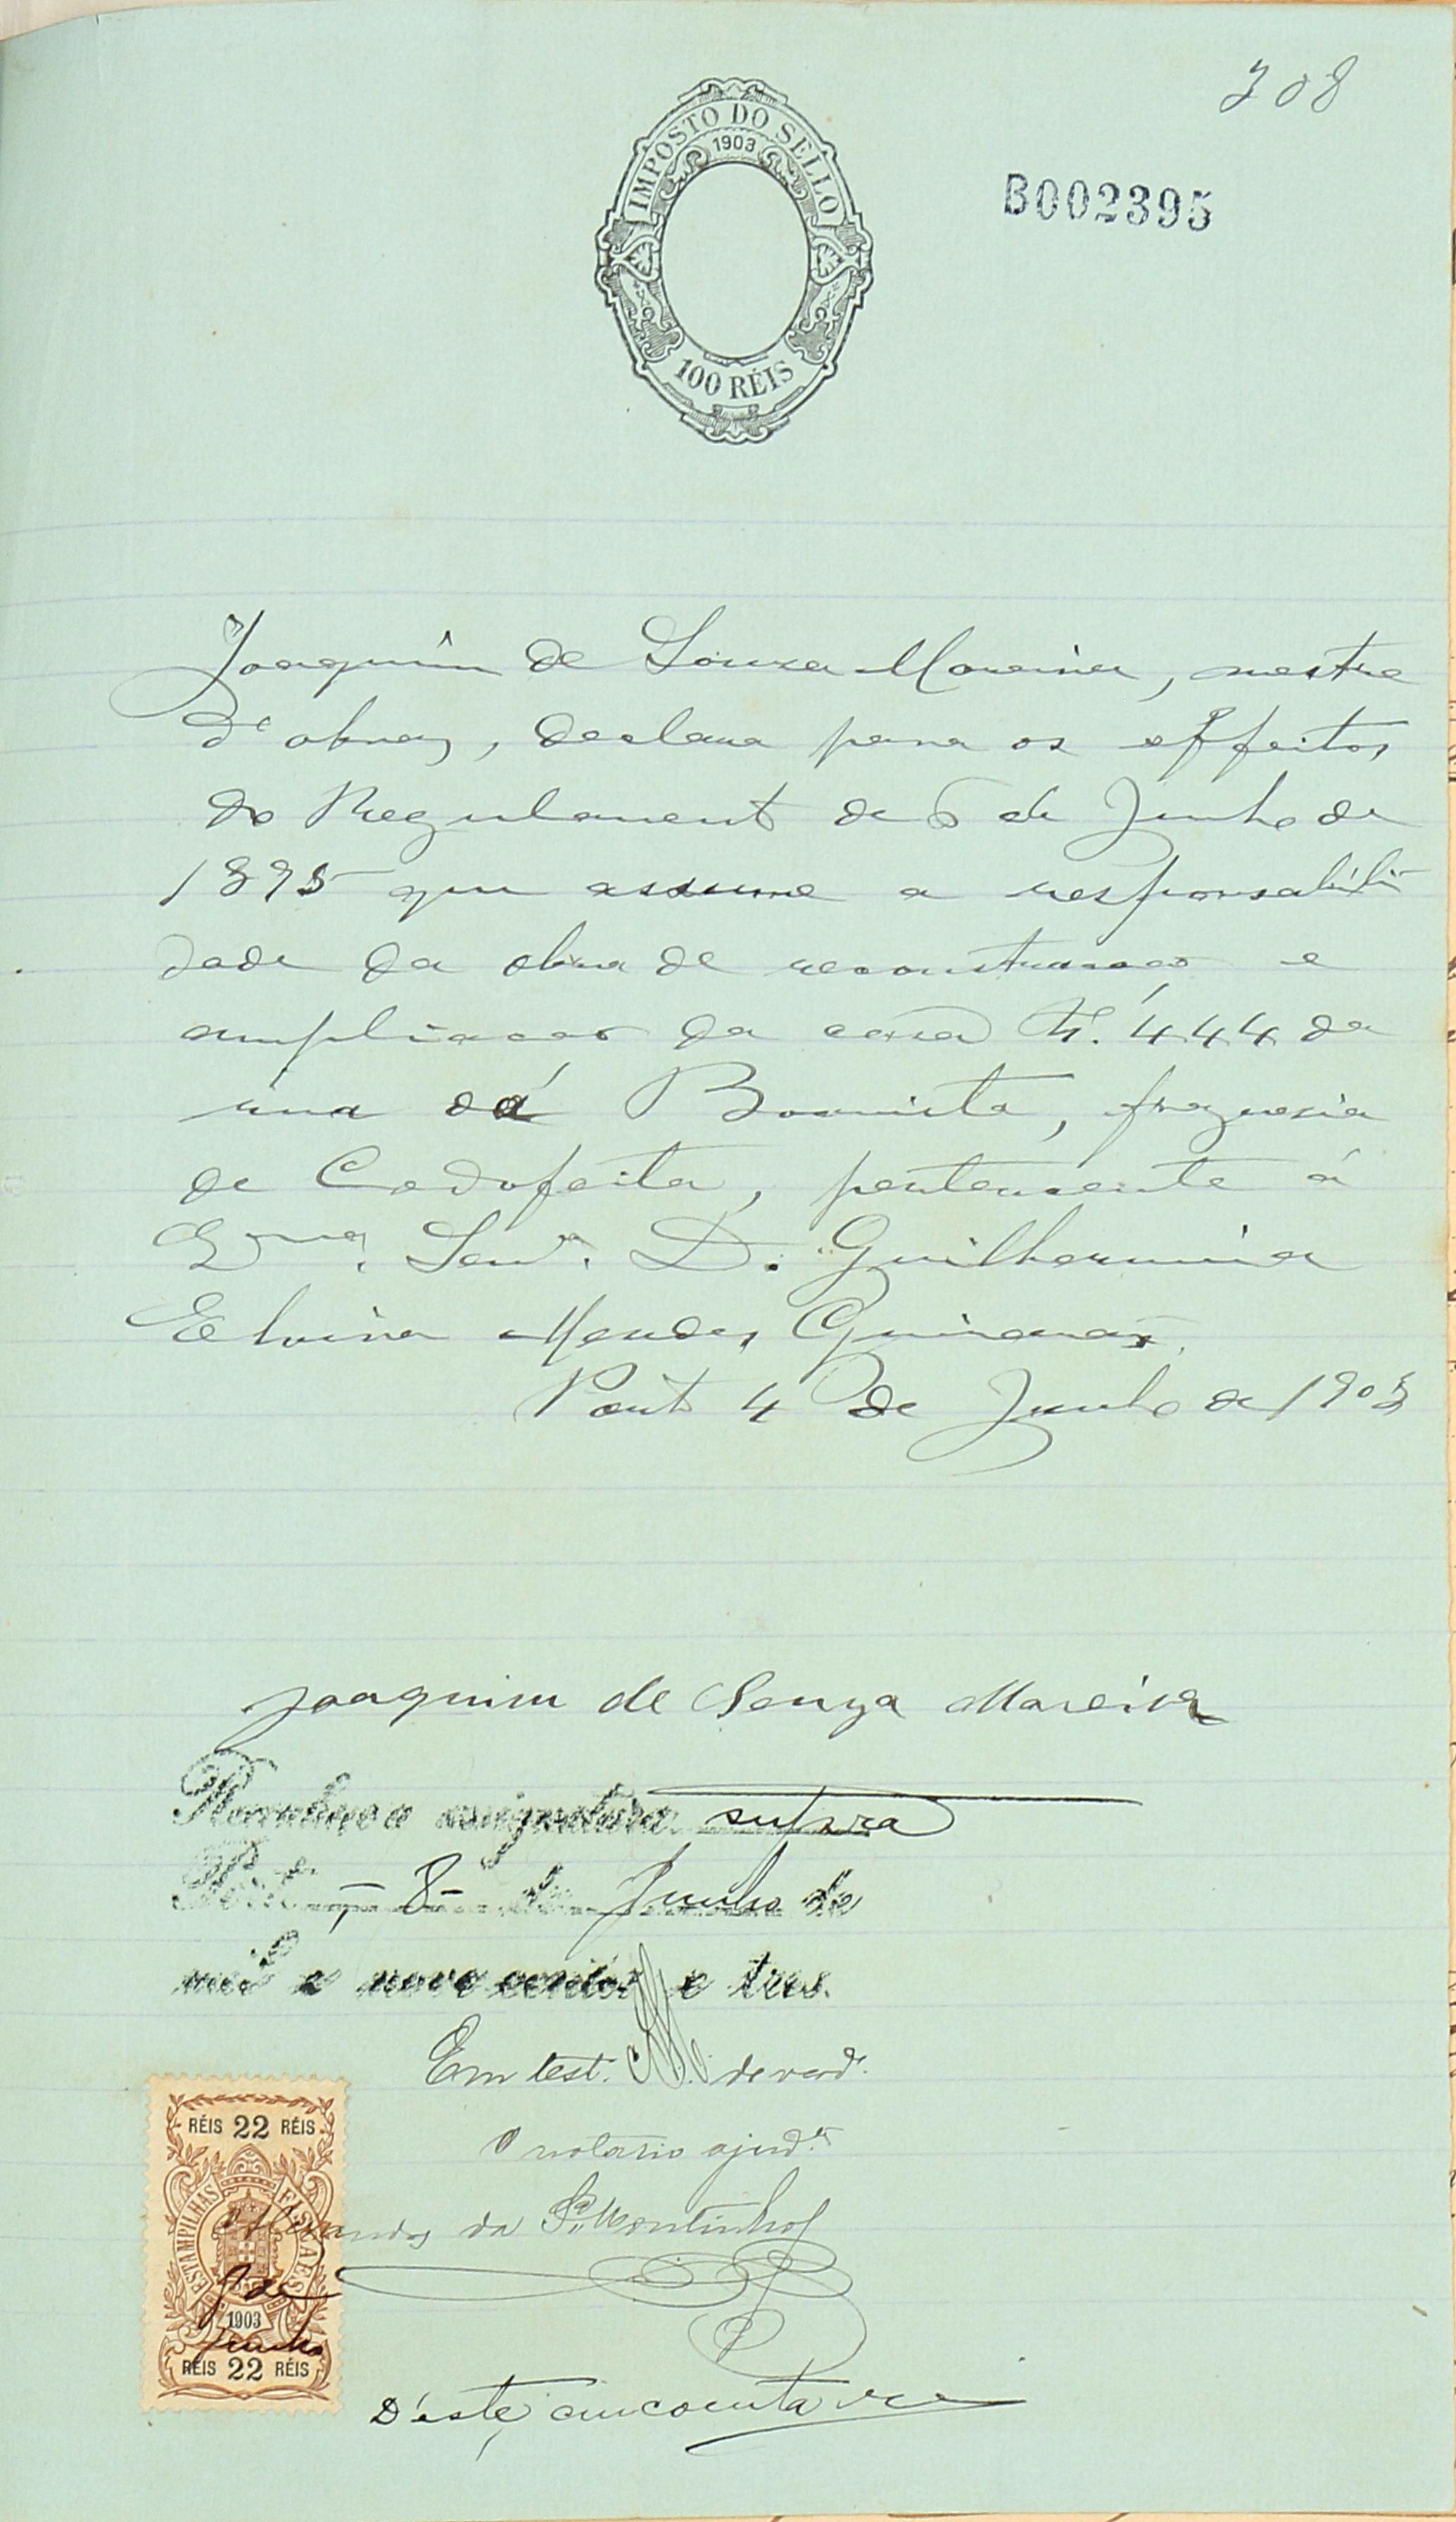 708
IMPOSTO DO SELLO
1903
100 RÉIS
B002395
Joaquim de Souza Moreira, mestre
d'obras, declara para os effeitos
do Regulament de 6 de Junho de
1895 que assume a responsabili
dade da obra de reconstrucção e
ampliacao da casa Nº. 444 da
rua dá Boavista, freguesia
de Cedofeita, pertencente á
Exma. Senrª. D. Guilhermina
Elvira Mendes Guimarães.
Porto 4 de Junho de 1903
Joaquim de Souza Moreira
Reconheço a assignatura supra
Porto, - 8 - de Junho de
mil e nove centos e tres.
Em test. de verd.e
O notario ajud.te
da Sª. Moutinho
RÉIS 22 RÉIS
ESTAMPILHAS FISCAES
8 de
1903
Junho
RÉIS 22 RÉIS
D'éste, cincoenta rei